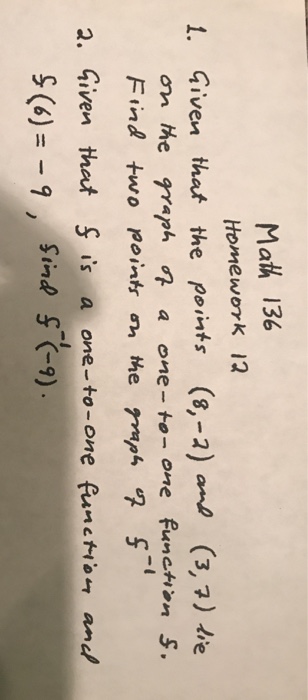 Math 136
Homework 12
1. Given that the points (8,-2) and (3,7) lie
on the graph of a one-to-one function f.
Find two points on the graph of f⁻¹
2. Given that f is a one-to-one function and
f(6) = -9, find f⁻¹(-9).